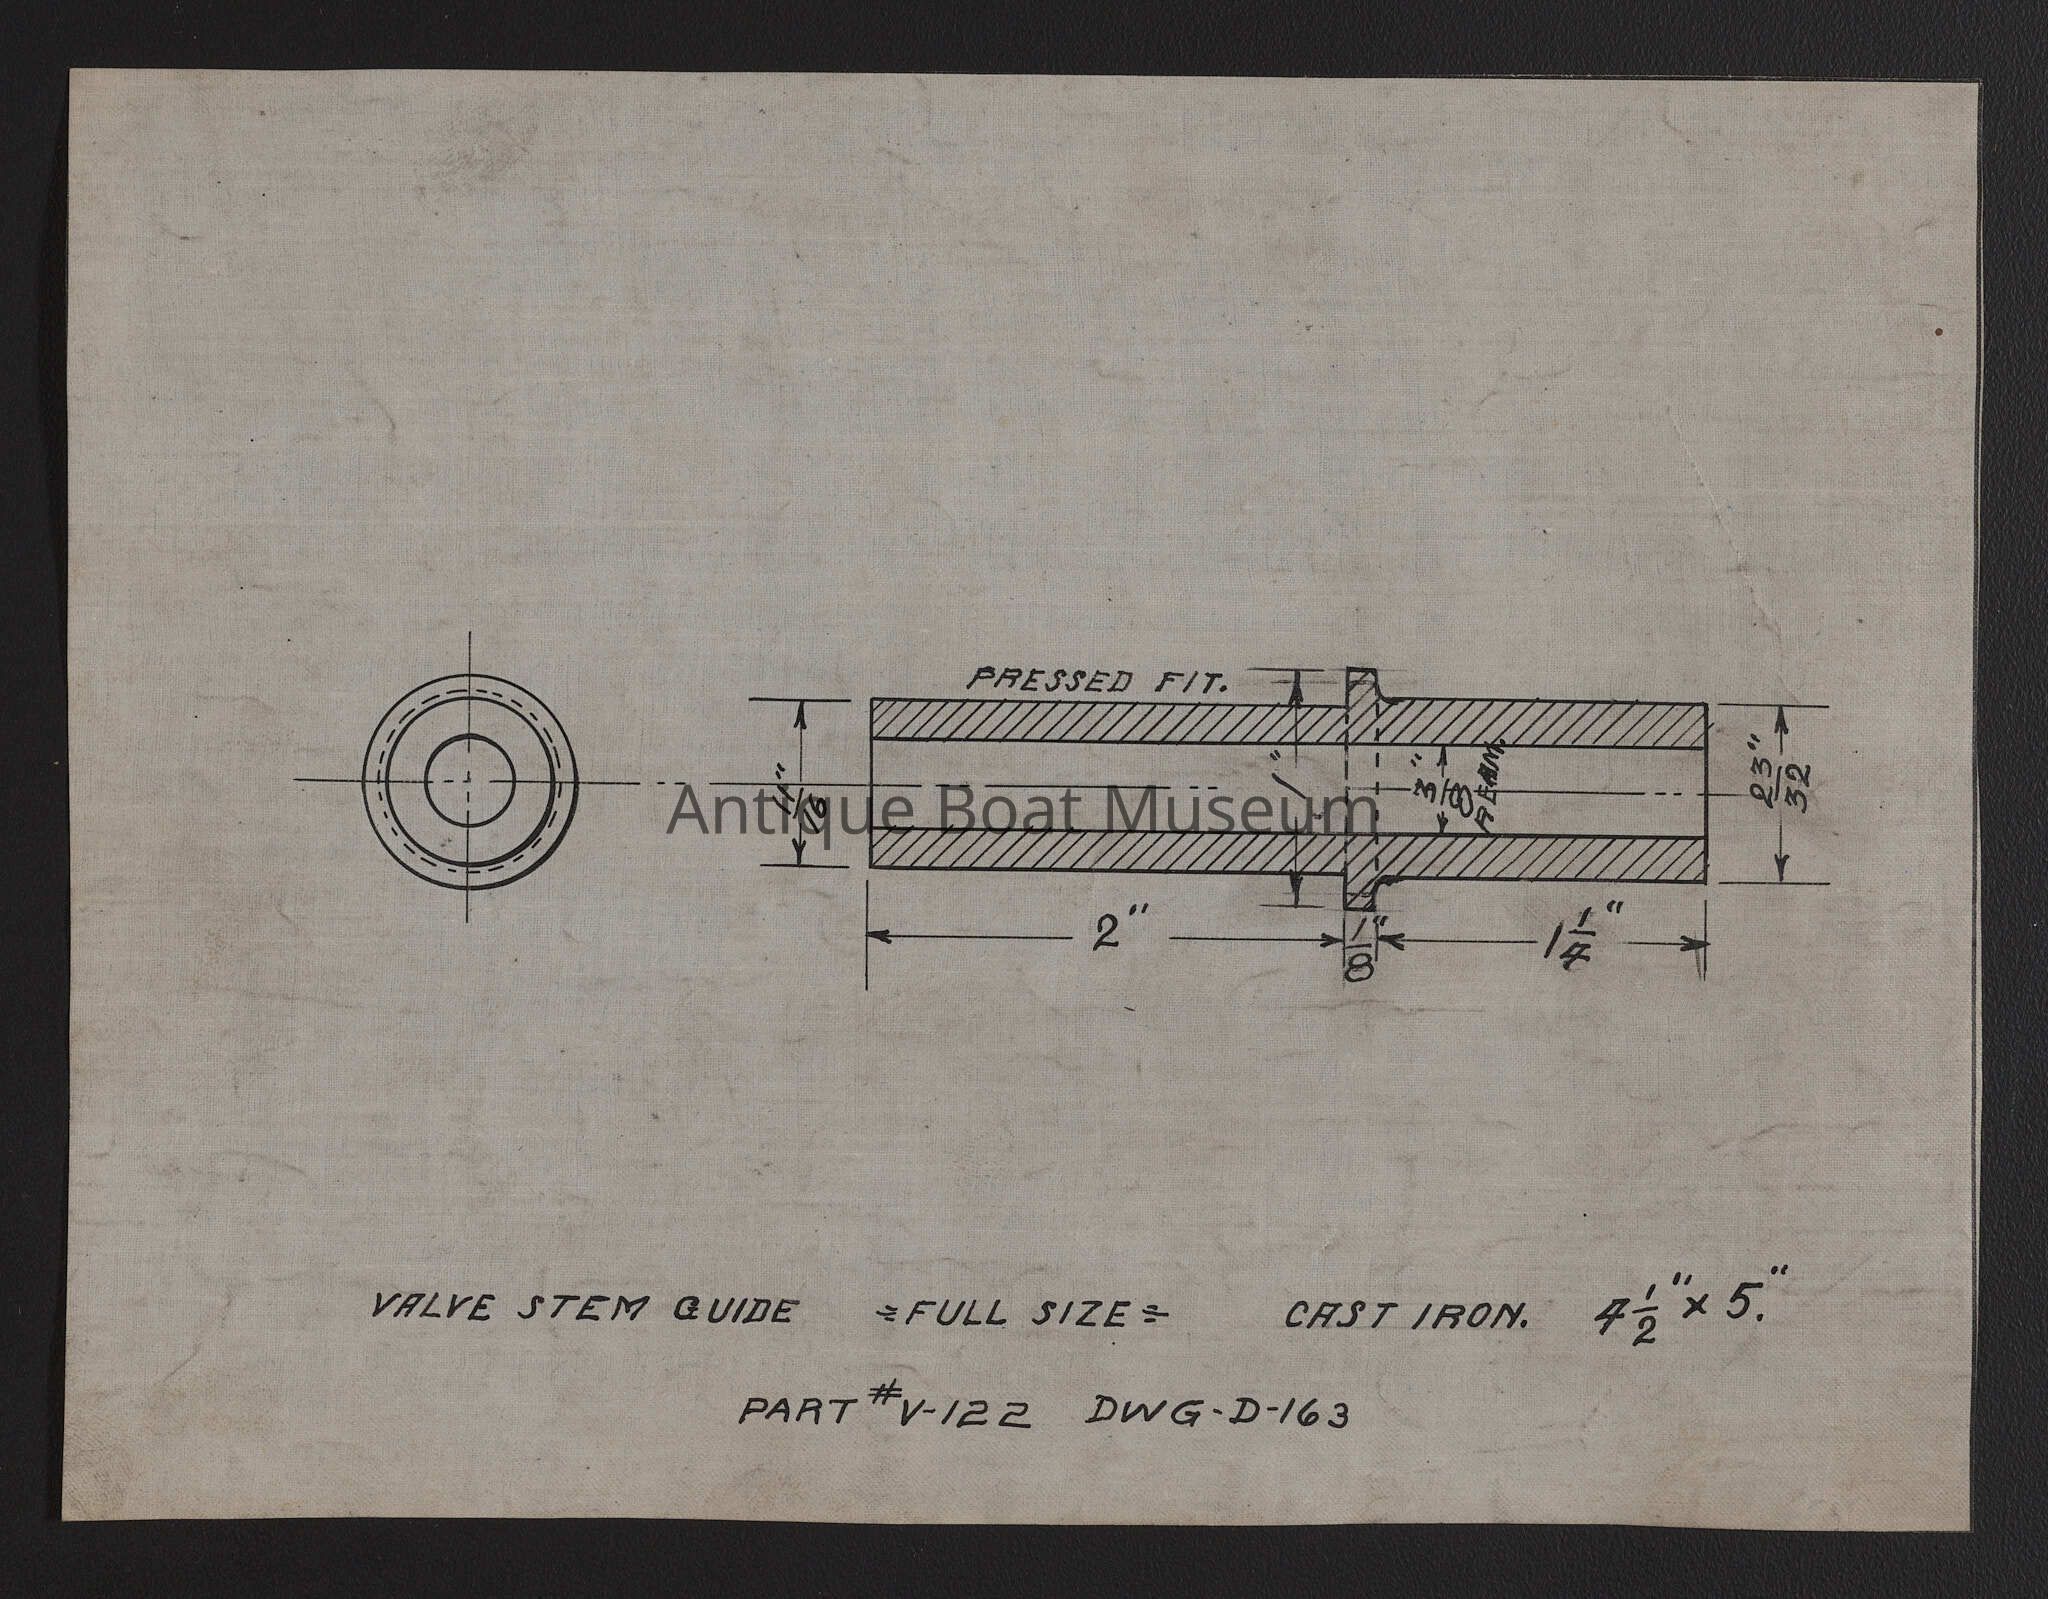 PRESSED FIT.
11"
16
1"
3"
8
REAM.
23"
32
2"
1"
8
1 1/4"
Antique Boat Museum
VALVE STEM GUIDE =FULL SIZE= CAST IRON. 4 1/2" x 5."
PART #V-122 DWG-D-163